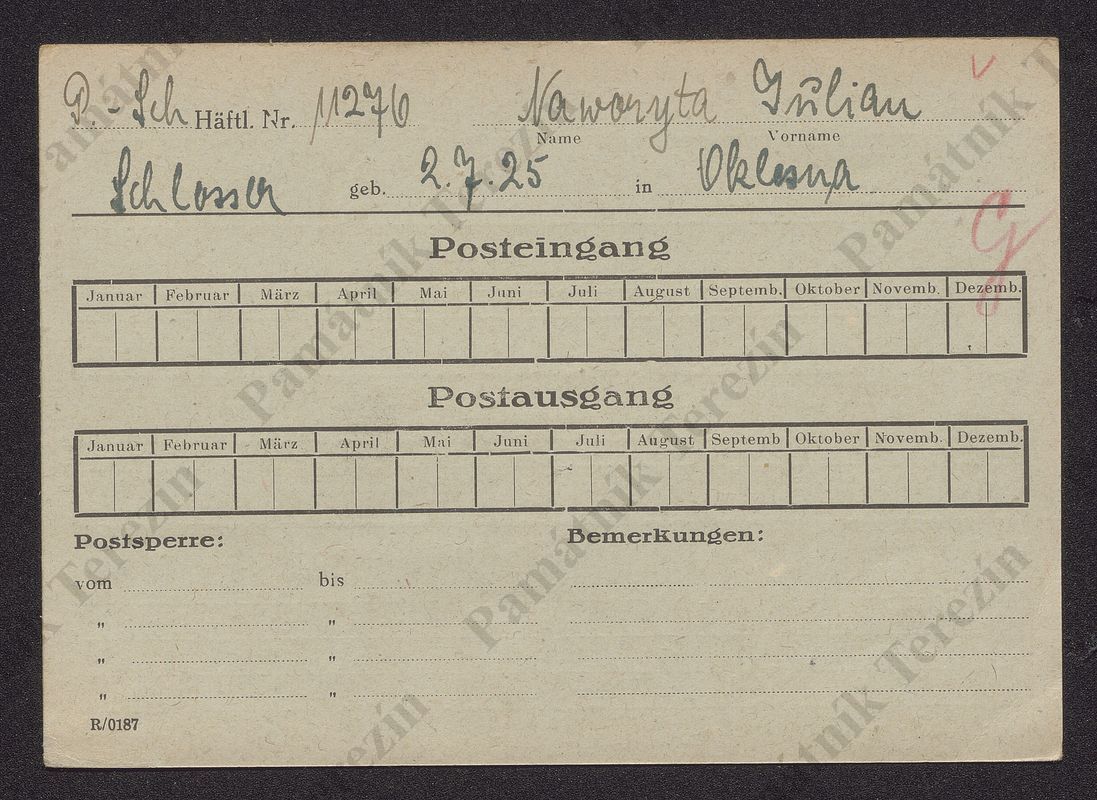 P. - Sch Häftl. Nr. 11276 Naworyta Julian
Name Vorname
Schlosser geb. 2.7.25 in Oklesna
G
Posteingang
Januar Februar März April Mai Juni Juli August Septemb. Oktober Novemb. Dezemb.
Postausgang
Januar Februar März April Mai Juni Juli August Septemb Oktober Novemb. Dezemb.
Postsperre: Bemerkungen:
vom bis
„ „
„ „
„ „
R/0187
Památník Terezín